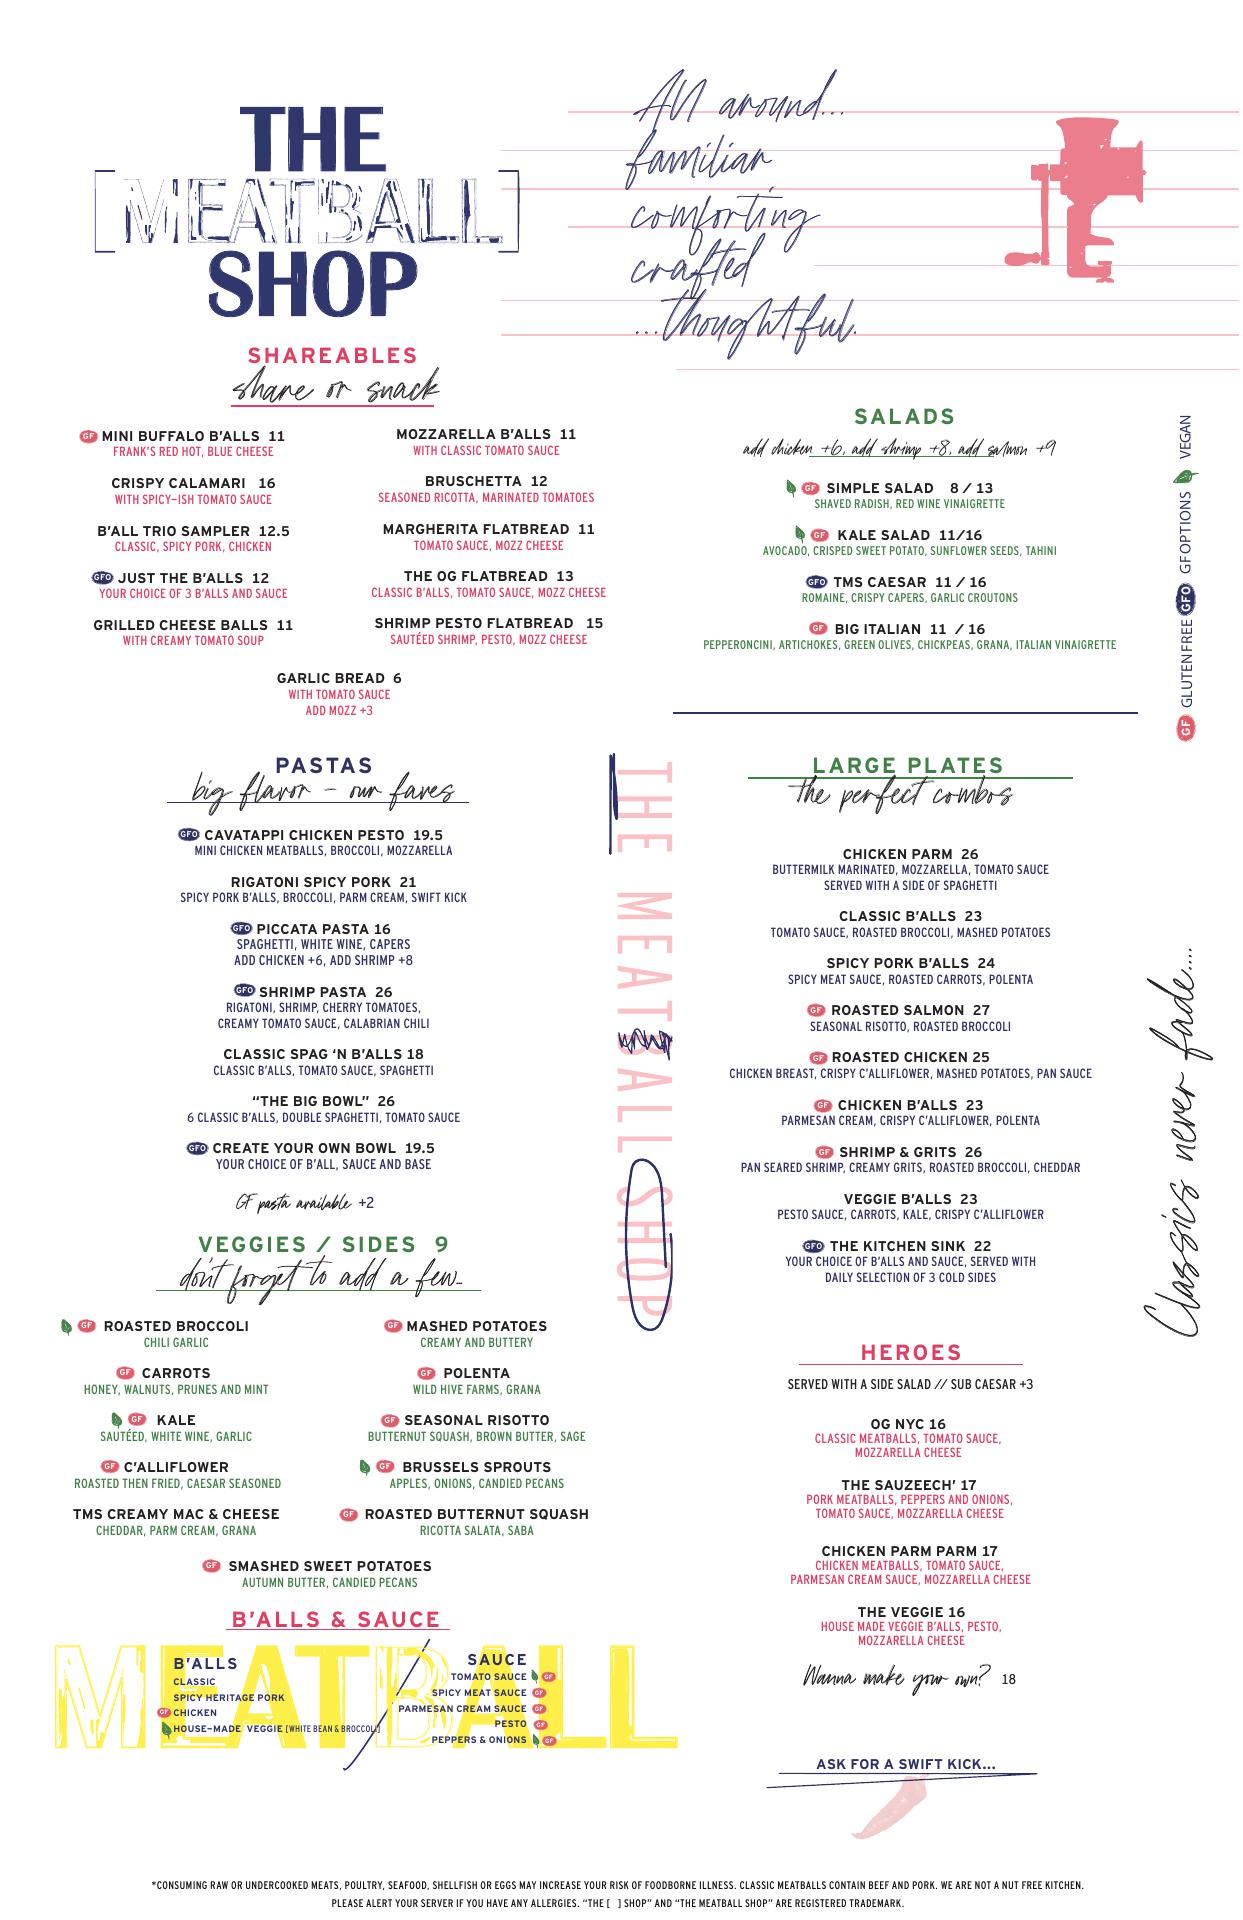 THE
[MEATBALL]
SHOP
All around...
familiar
comforting
crafted
...thoughtful.
SHAREABLES
share or snack
GF MINI BUFFALO B'ALLS 11
FRANK'S RED HOT, BLUE CHEESE
CRISPY CALAMARI 16
WITH SPICY–ISH TOMATO SAUCE
B'ALL TRIO SAMPLER 12.5
CLASSIC, SPICY PORK, CHICKEN
GFO JUST THE B'ALLS 12
YOUR CHOICE OF 3 B'ALLS AND SAUCE
GRILLED CHEESE BALLS 11
WITH CREAMY TOMATO SOUP
MOZZARELLA B'ALLS 11
WITH CLASSIC TOMATO SAUCE
BRUSCHETTA 12
SEASONED RICOTTA, MARINATED TOMATOES
MARGHERITA FLATBREAD 11
TOMATO SAUCE, MOZZ CHEESE
THE OG FLATBREAD 13
CLASSIC B'ALLS, TOMATO SAUCE, MOZZ CHEESE
SHRIMP PESTO FLATBREAD 15
SAUTÉED SHRIMP, PESTO, MOZZ CHEESE
GARLIC BREAD 6
WITH TOMATO SAUCE
ADD MOZZ +3
SALADS
add chicken +6, add shrimp +8, add salmon +9
GF SIMPLE SALAD 8 / 13
SHAVED RADISH, RED WINE VINAIGRETTE
GF KALE SALAD 11/16
AVOCADO, CRISPED SWEET POTATO, SUNFLOWER SEEDS, TAHINI
GFO TMS CAESAR 11 / 16
ROMAINE, CRISPY CAPERS, GARLIC CROUTONS
GF BIG ITALIAN 11 / 16
PEPPERONCINI, ARTICHOKES, GREEN OLIVES, CHICKPEAS, GRANA, ITALIAN VINAIGRETTE
GF GLUTEN FREE GFO GF OPTIONS VEGAN
PASTAS
big flavor - our faves
GFO CAVATAPPI CHICKEN PESTO 19.5
MINI CHICKEN MEATBALLS, BROCCOLI, MOZZARELLA
RIGATONI SPICY PORK 21
SPICY PORK B'ALLS, BROCCOLI, PARM CREAM, SWIFT KICK
GFO PICCATA PASTA 16
SPAGHETTI, WHITE WINE, CAPERS
ADD CHICKEN +6, ADD SHRIMP +8
GFO SHRIMP PASTA 26
RIGATONI, SHRIMP, CHERRY TOMATOES,
CREAMY TOMATO SAUCE, CALABRIAN CHILI
CLASSIC SPAG 'N B'ALLS 18
CLASSIC B'ALLS, TOMATO SAUCE, SPAGHETTI
"THE BIG BOWL" 26
6 CLASSIC B'ALLS, DOUBLE SPAGHETTI, TOMATO SAUCE
GFO CREATE YOUR OWN BOWL 19.5
YOUR CHOICE OF B'ALL, SAUCE AND BASE
GF pasta available +2
THE MEATBALL SHOP
LARGE PLATES
the perfect combos
CHICKEN PARM 26
BUTTERMILK MARINATED, MOZZARELLA, TOMATO SAUCE
SERVED WITH A SIDE OF SPAGHETTI
CLASSIC B'ALLS 23
TOMATO SAUCE, ROASTED BROCCOLI, MASHED POTATOES
SPICY PORK B'ALLS 24
SPICY MEAT SAUCE, ROASTED CARROTS, POLENTA
GF ROASTED SALMON 27
SEASONAL RISOTTO, ROASTED BROCCOLI
GF ROASTED CHICKEN 25
CHICKEN BREAST, CRISPY C'ALLIFLOWER, MASHED POTATOES, PAN SAUCE
GF CHICKEN B'ALLS 23
PARMESAN CREAM, CRISPY C'ALLIFLOWER, POLENTA
GF SHRIMP & GRITS 26
PAN SEARED SHRIMP, CREAMY GRITS, ROASTED BROCCOLI, CHEDDAR
VEGGIE B'ALLS 23
PESTO SAUCE, CARROTS, KALE, CRISPY C'ALLIFLOWER
GFO THE KITCHEN SINK 22
YOUR CHOICE OF B'ALLS AND SAUCE, SERVED WITH
DAILY SELECTION OF 3 COLD SIDES
Classics never fade....
VEGGIES / SIDES 9
don't forget to add a few...
GF ROASTED BROCCOLI
CHILI GARLIC
GF CARROTS
HONEY, WALNUTS, PRUNES AND MINT
GF KALE
SAUTÉED, WHITE WINE, GARLIC
GF C'ALLIFLOWER
ROASTED THEN FRIED, CAESAR SEASONED
TMS CREAMY MAC & CHEESE
CHEDDAR, PARM CREAM, GRANA
GF MASHED POTATOES
CREAMY AND BUTTERY
GF POLENTA
WILD HIVE FARMS, GRANA
GF SEASONAL RISOTTO
BUTTERNUT SQUASH, BROWN BUTTER, SAGE
GF BRUSSELS SPROUTS
APPLES, ONIONS, CANDIED PECANS
GF ROASTED BUTTERNUT SQUASH
RICOTTA SALATA, SABA
GF SMASHED SWEET POTATOES
AUTUMN BUTTER, CANDIED PECANS
HEROES
SERVED WITH A SIDE SALAD // SUB CAESAR +3
OG NYC 16
CLASSIC MEATBALLS, TOMATO SAUCE,
MOZZARELLA CHEESE
THE SAUZEECH' 17
PORK MEATBALLS, PEPPERS AND ONIONS,
TOMATO SAUCE, MOZZARELLA CHEESE
CHICKEN PARM PARM 17
CHICKEN MEATBALLS, TOMATO SAUCE,
PARMESAN CREAM SAUCE, MOZZARELLA CHEESE
THE VEGGIE 16
HOUSE MADE VEGGIE B'ALLS, PESTO,
MOZZARELLA CHEESE
Wanna make your own? 18
B'ALLS & SAUCE
MEATBALL
B'ALLS
CLASSIC
SPICY HERITAGE PORK
GF CHICKEN
HOUSE–MADE VEGGIE [WHITE BEAN & BROCCOLI]
SAUCE
TOMATO SAUCE GF
SPICY MEAT SAUCE GF
PARMESAN CREAM SAUCE GF
PESTO GF
PEPPERS & ONIONS GF
ASK FOR A SWIFT KICK...
*CONSUMING RAW OR UNDERCOOKED MEATS, POULTRY, SEAFOOD, SHELLFISH OR EGGS MAY INCREASE YOUR RISK OF FOODBORNE ILLNESS. CLASSIC MEATBALLS CONTAIN BEEF AND PORK. WE ARE NOT A NUT FREE KITCHEN.
PLEASE ALERT YOUR SERVER IF YOU HAVE ANY ALLERGIES. "THE [ ] SHOP" AND "THE MEATBALL SHOP" ARE REGISTERED TRADEMARK.